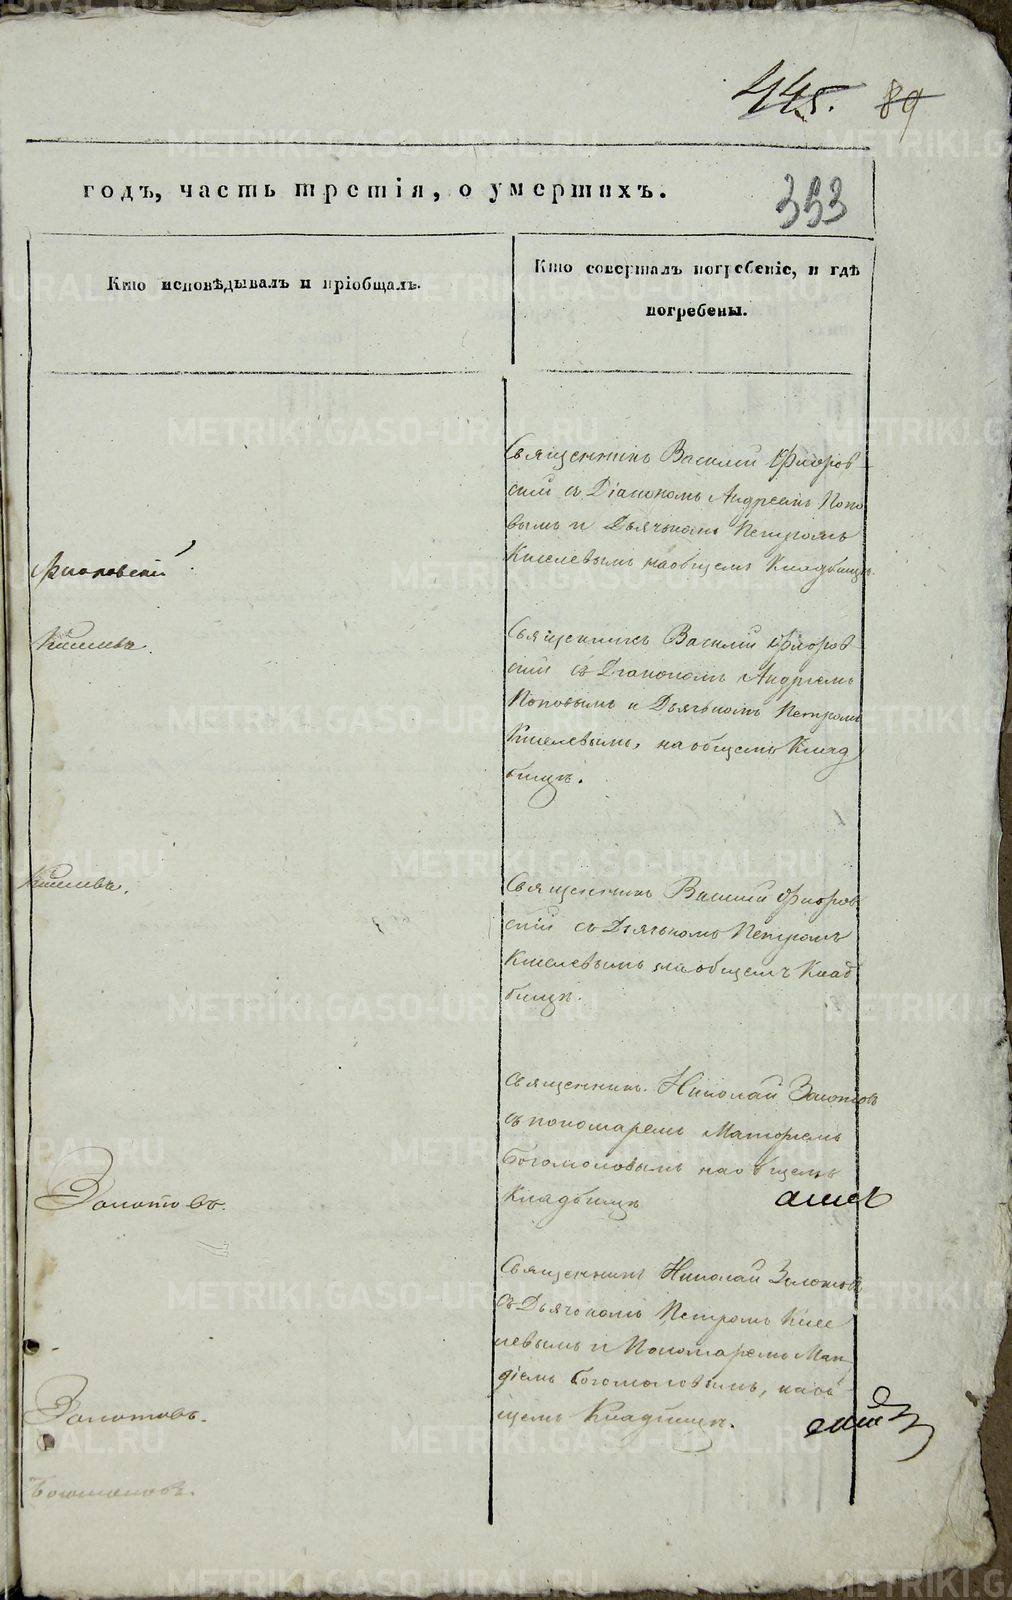 445. 89
годъ, часть третія, о умершихъ.
353
Кто исповѣдывалъ и пріобщалъ.
Кто совершалъ погребеніе, и гдѣ
погребены.
Священникъ Василій Флоров
скій съ Діакономъ Андреемъ Попо
вымъ и Дьячкомъ Петромъ
Киселевымъ на общемъ Кладбищѣ.
Флоровскій
Священникъ Василій Флоров
скій съ Діакономъ Андреемъ
Поповымъ и Дьячкомъ Петромъ
Киселевымъ, на общемъ Клад
бищѣ.
Киселевъ.
Священникъ Василій Флоров
скій съ Дьячкомъ Петромъ
Киселевымъ на общемъ Клад
бищѣ.
Киселевъ.
Священникъ Николай Золотовъ
съ пономаремъ Матфіемъ
Богомоловымъ на общемъ
Кладбищѣ
Золотовъ.
Священникъ Николай Золотовъ
съ Дьячкомъ Петромъ Кисе
левымъ и Пономаремъ Мат
фіемъ Богомоловымъ, на об
щемъ Кладбищѣ.
Золотовъ.
Богомоловъ.
METRIKI.GASO-URAL.RU